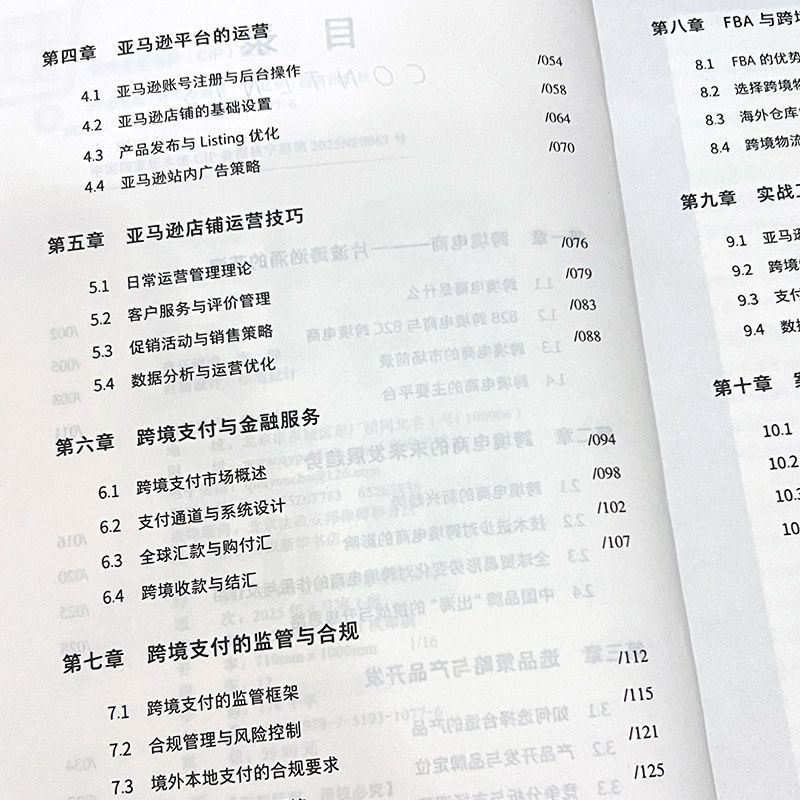 第四章 亚马逊平台的运营
4.1 亚马逊账号注册与后台操作 /054
4.2 亚马逊店铺的基础设置 /058
4.3 产品发布与 Listing 优化 /064
4.4 亚马逊站内广告策略 /070
第五章 亚马逊店铺运营技巧
5.1 日常运营管理理论 /076
5.2 客户服务与评价管理 /079
5.3 促销活动与销售策略 /083
5.4 数据分析与运营优化 /088
第六章 跨境支付与金融服务
6.1 跨境支付市场概述 /094
6.2 支付通道与系统设计 /098
6.3 全球汇款与购付汇 /102
6.4 跨境收款与结汇 /107
第七章 跨境支付的监管与合规
7.1 跨境支付的监管框架 /112
7.2 合规管理与风险控制 /115
7.3 境外本地支付的合规要求 /121
/125
第八章 FBA 与跨境
8.1 FBA 的优势
8.2 选择跨境物
8.3 海外仓库
8.4 跨境物流
第九章 实战
9.1 亚马逊
9.2 跨境
9.3 支付
9.4 数据
第十章
10.1
10.2
10.3
10.